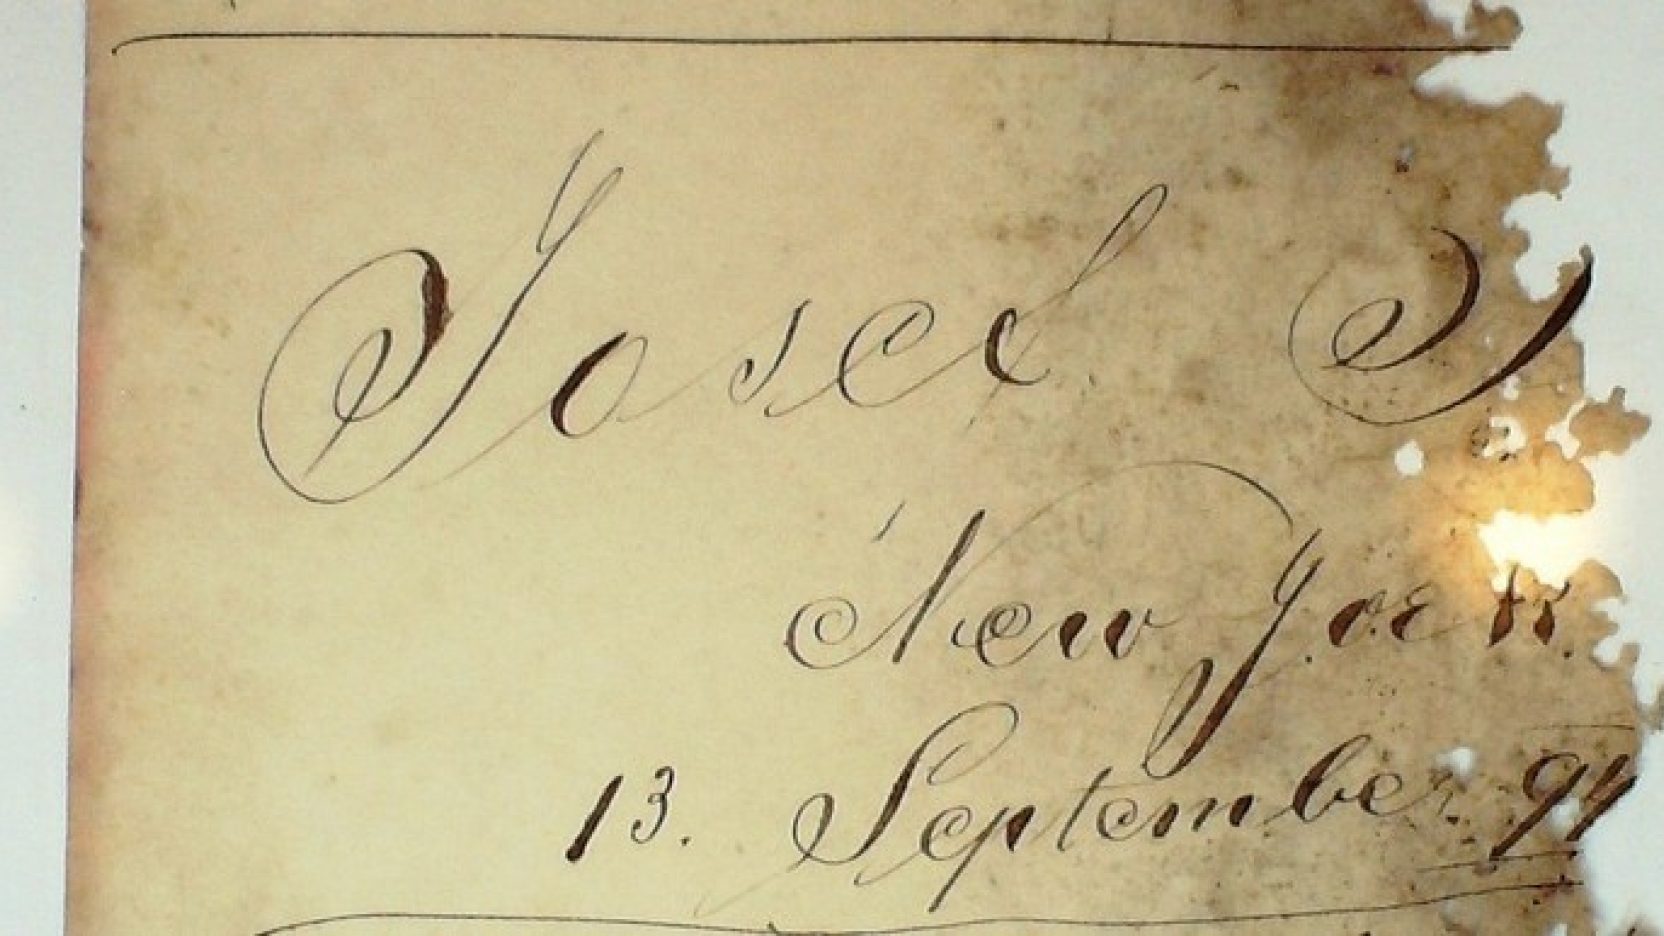 Josel
New York.
13. September 94